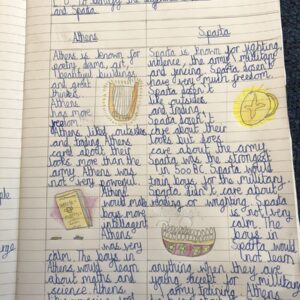 and Sparta
Athens
Athens is known for
poetry, drama, art,
beautiful buildings,
and great
Athens
has more
freedom.
Athens likes outsides
and trading. Athens
cared about their
looks more than the
army. Athens was
not very powerful.
Athens
would make
boys more
intelligent
Athens
was very
calm. The boys in
Athens would learn
about maths and
science. Athens
Sparta
Sparta is known for fighting,
violence, the army/military
and fencing. Sparta doesn't
have very much freedom.
Sparta doesn't
like outsides
and trading.
Sparta doesn't
care about their
looks but does
care about the army.
Sparta was the strongest
in 500 BC. Sparta would
train boys for the military
Sparta didn't care about
reading or wrighting. Sparta
is not very
calm. The
boys in
Sparta would
not learn
anything when they are
young except for military
army training. Athens